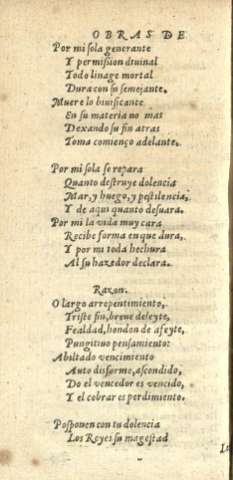 OBRAS DE
Por mi sola generante
Y permision diuinal
Todo linage mortal
Dura con su semejante.
Muere lo biuificante
En su materia no mas
Dexando su fin atras
Toma comienço adelante.
Por mi sola se repara
Quanto destruye dolencia
Mar, y huego, y pestilencia,
Y de aqui quanto desuara.
Por mi la vida muy cara
Recibe forma en que dura,
Y por mi toda hechura
Al su hazedor declara.
Razon.
O largo arrepentimiento,
Triste fin, breue deleyte,
Fealdad, hondon de afeyte,
Pungitiuo pensamiento:
Abiltado vencimiento
Auto disforme, ascondido,
Do el vencedor es vencido,
Y el cobrar es perdimiento.
Posponen con tu dolencia
Los Reyes su magestad